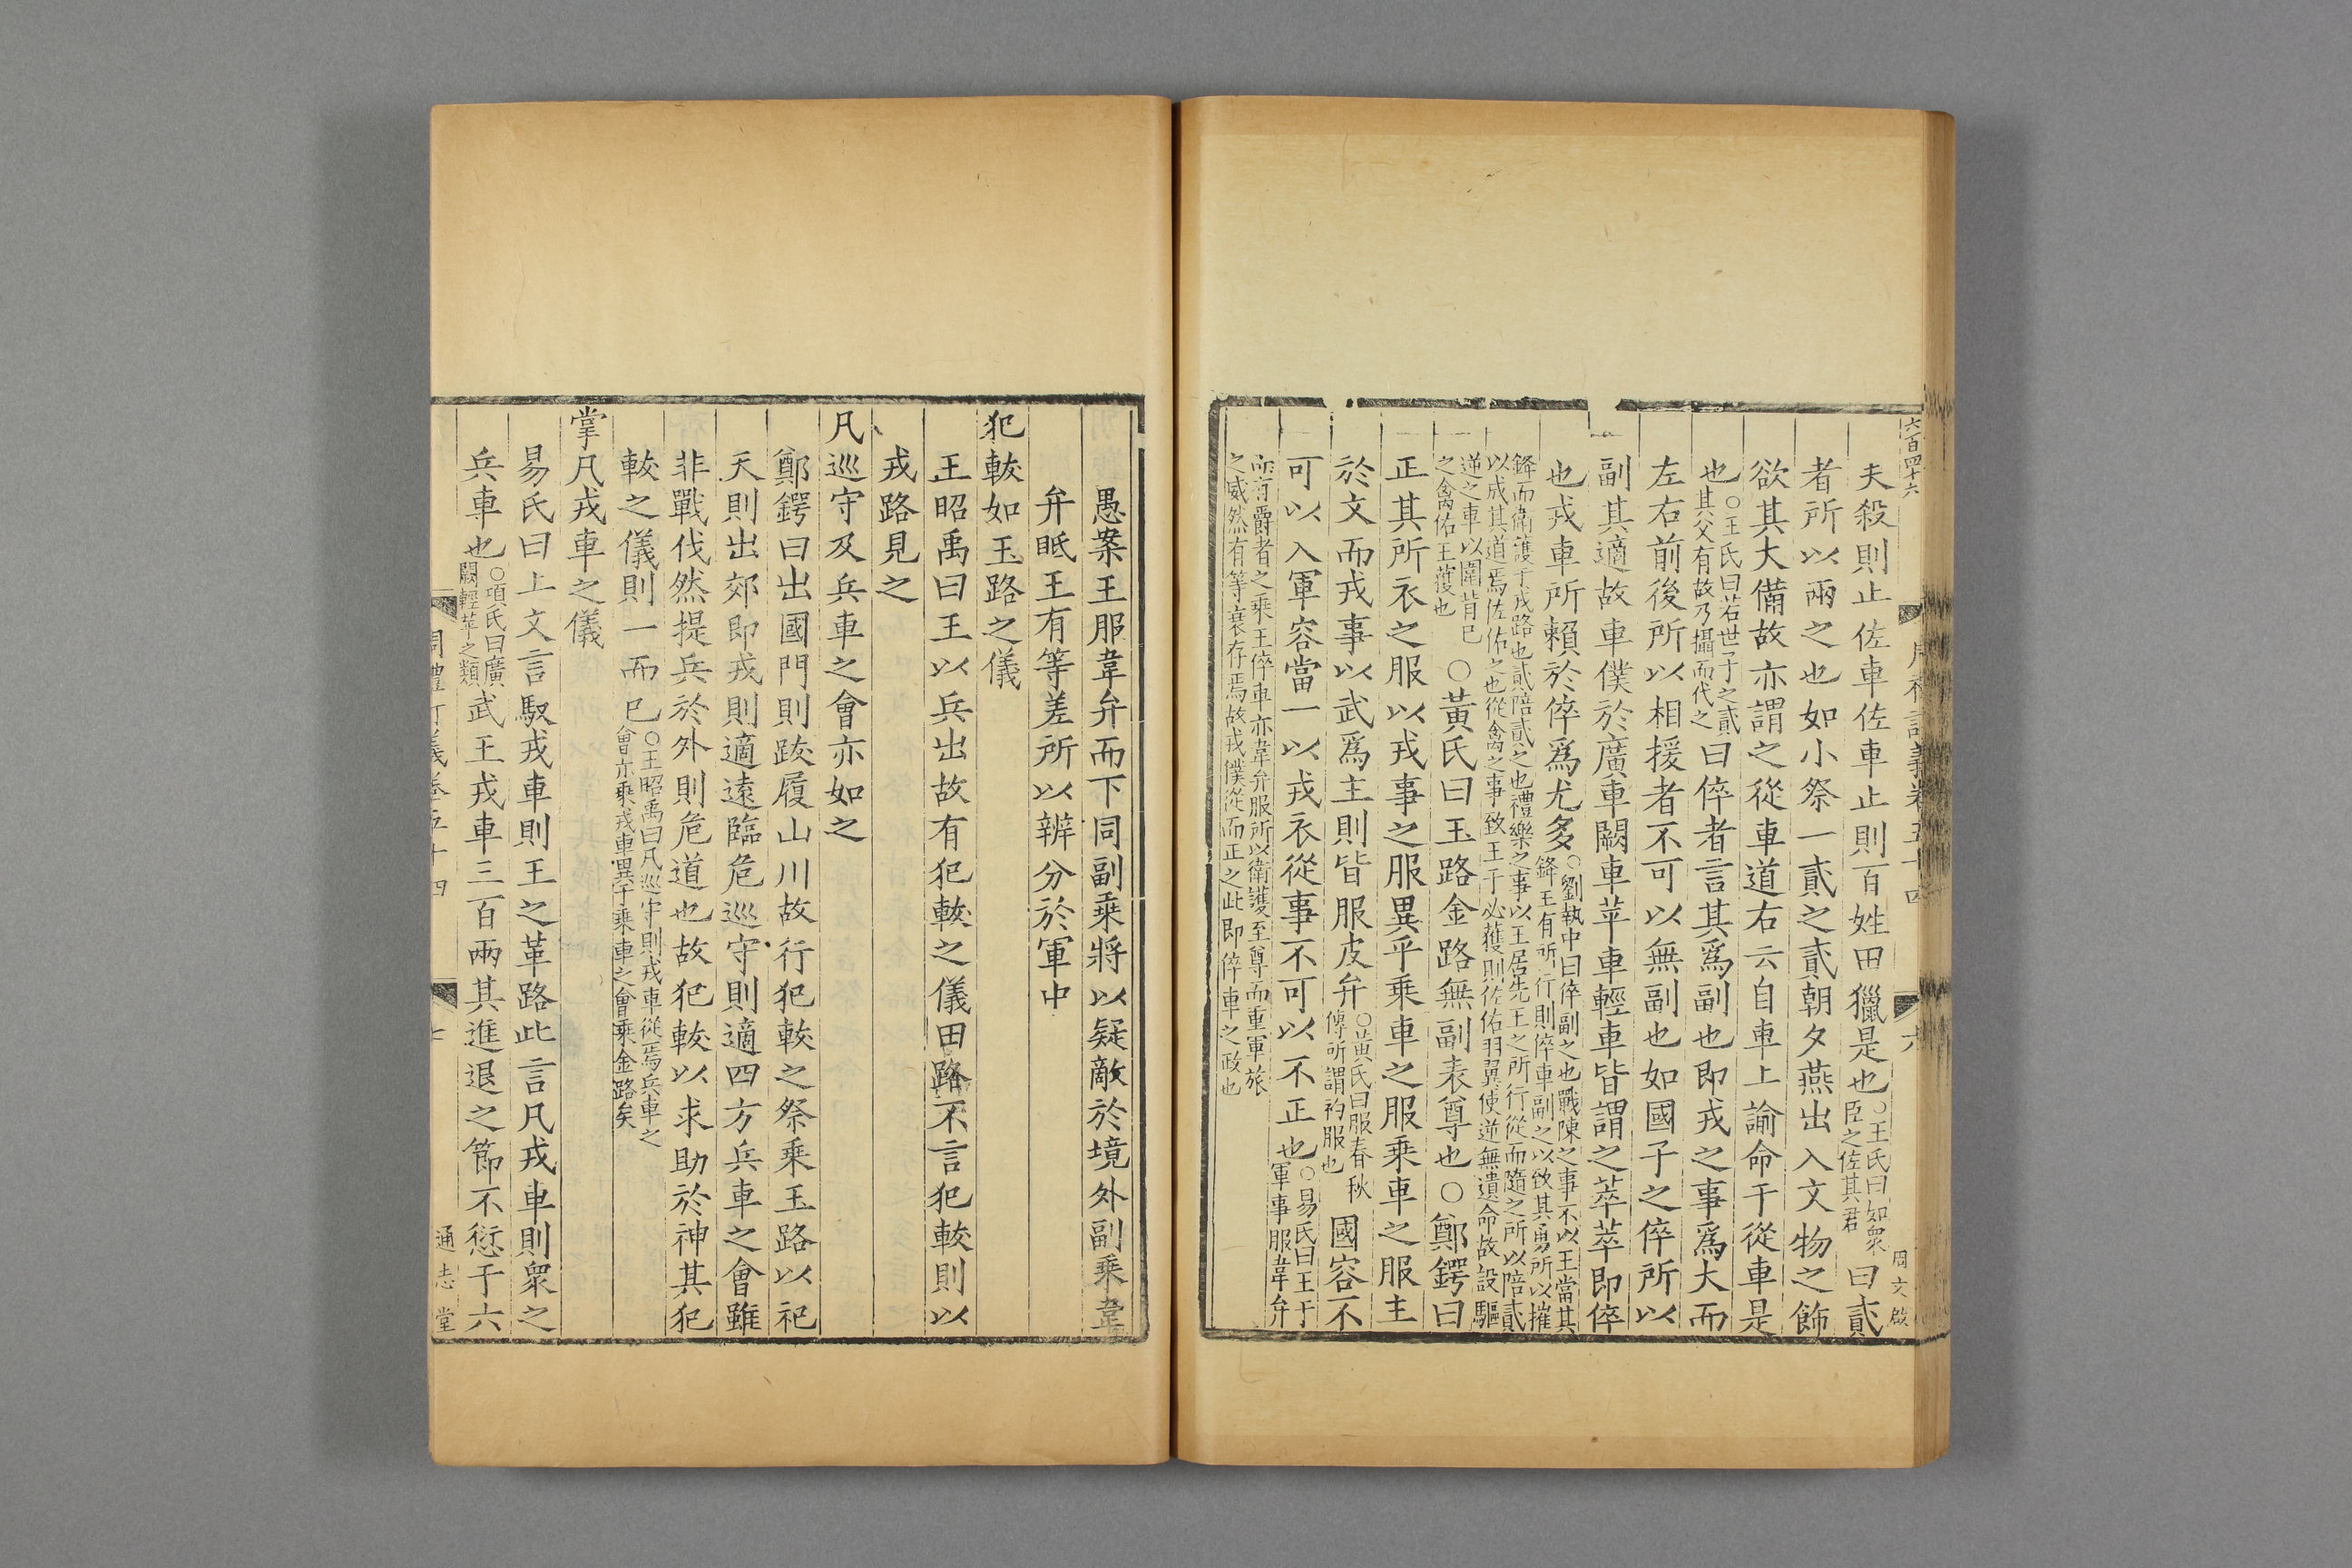 六百四十六
周禮訂義卷五十四
六
周文啟
夫殺則止佐車佐車止則百姓田獵是也○王氏曰如衆臣之佐其君曰貳
者所以兩之也如小祭一貳之貳朝夕燕出入文物之飾
欲其大備故亦謂之從車道右云自車上諭命于從車是
也○王氏曰若世子之貳其父有故乃攝而代之曰倅者言其爲副也即戎之事爲大而
左右前後所以相援者不可以無副也如國子之倅所以
副其適故車僕於廣車闕車苹車輕車皆謂之萃萃即倅
也戎車所賴於倅爲尤多○劉執中曰倅副之也戰陳之事不以王當其鋒王有所行則倅車副之以致其勇所以摧
鋒而衛護于戎路也貳陪貳之也禮樂之事以王居先王之所行從而隨之所以陪貳以成其道焉佐佑之也從禽之事致王于必獲則佐佑羽翼使逆無遺命故設驅
逆之車以圍背已之禽佑王獲也○黃氏曰玉路金路無副表尊也○鄭鍔曰
正其所衣之服以戎事之服異乎乘車之服乘車之服主
於文而戎事以武爲主則皆服皮弁○黃氏曰服春秋傳所謂袀服也國容不
可以入軍容當一以戎衣從事不可以不正也○易氏曰王于軍事服韋弁
而有爵者之乘王倅車亦韋弁服所以衛護至尊而重軍旅之威然有等衰存焉故戎僕從而正之此即倅車之政也
愚案王服韋弁而下同副乘將以疑敵於境外副乘韋
弁眡王有等差所以辨分於軍中
犯軷如玉路之儀
王昭禹曰王以兵出故有犯軷之儀田路不言犯軷則以
戎路見之
凡巡守及兵車之會亦如之
鄭鍔曰出國門則跋履山川故行犯軷之祭乘玉路以祀
天則出郊即戎則適遠臨危巡守則適四方兵車之會雖
非戰伐然提兵於外則危道也故犯軷以求助於神其犯
軷之儀則一而已○王昭禹曰凡巡守則戎車從焉兵車之會亦乘戎車異乎乘車之會乘金路矣
掌凡戎車之儀
易氏曰上文言馭戎車則王之革路此言凡戎車則衆之
兵車也○項氏曰廣闕輕苹之類武王戎車三百兩其進退之節不愆于六
周禮訂義卷五十四
七
通志堂